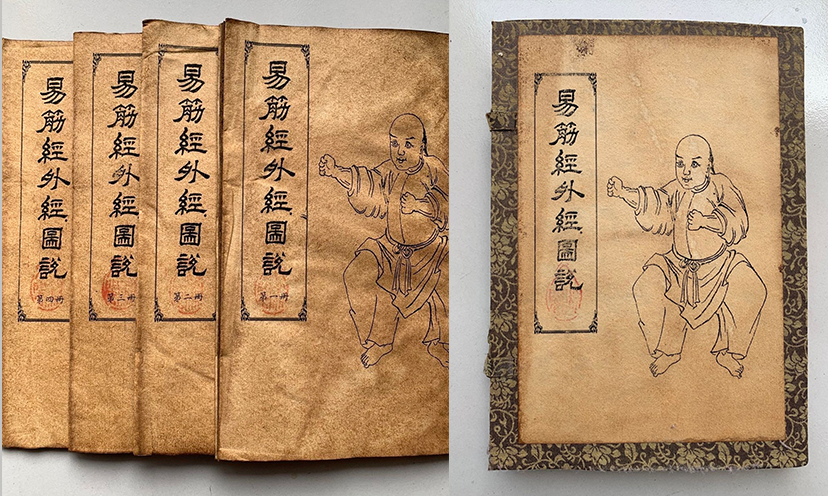 易筋經外經圖說
第四冊
易筋經外經圖說
第三冊
易筋經外經圖說
第二冊
易筋經外經圖說
第一冊
易筋經外經圖說